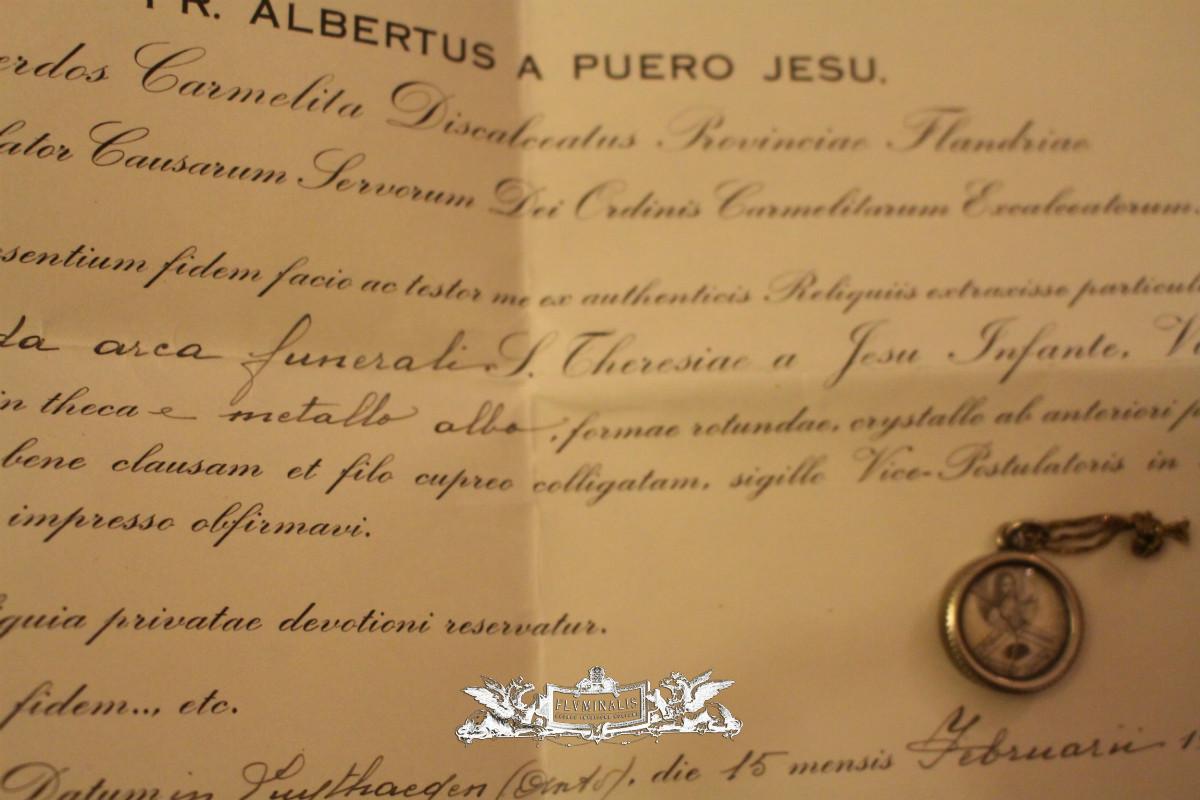 FR. ALBERTUS A PUERO JESU.
erdos Carmelita Discalceatus Provinciae Flandriae
lator Causarum Servorum Dei Ordinis Carmelitarum Excalceatorum,
sentium fidem facio ac testor me ex authenticis Reliquiis extraxisse particul
da arca funerali S. Theresiae a Jesu Infante, Vi
in theca e metallo albo, formae rotundae, crystallo ab anteriori p
bene clausam et filo cupreo colligatam, sigillo Vice-Postulatoris in
impresso obfirmavi.
quia privatae devotioni reservatur.
fidem.., etc.
FLVMINALIS
Datum in (Gent), die 15 mensis Februarii 1